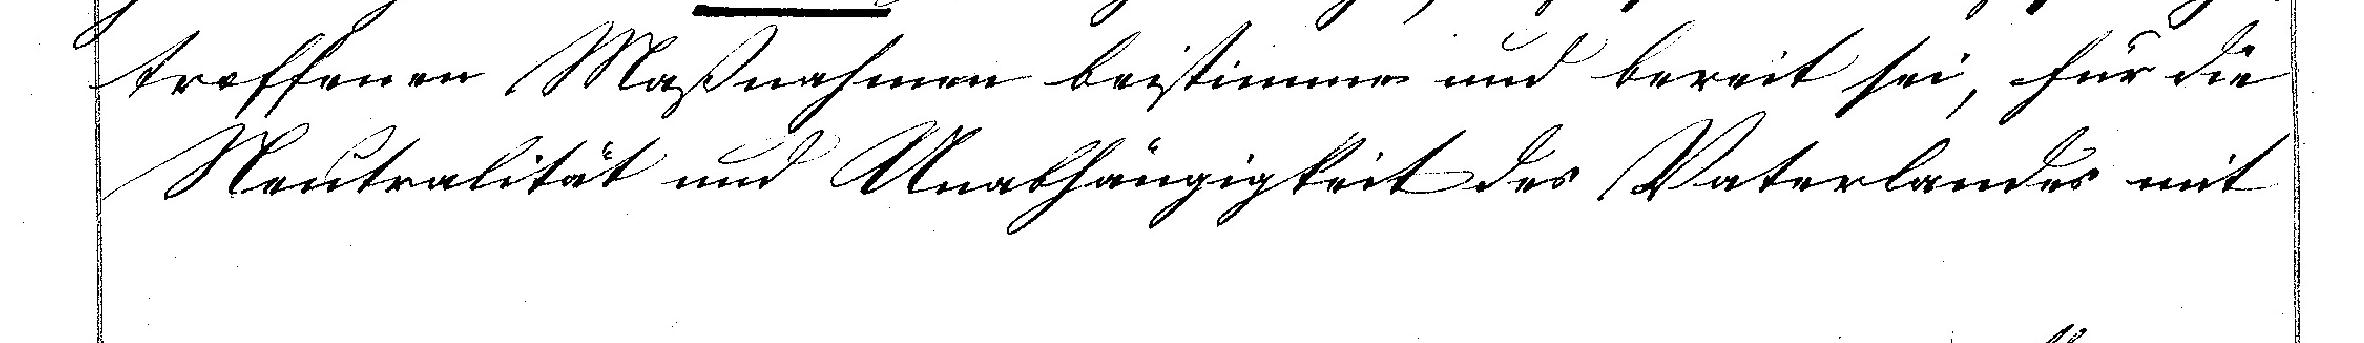 troffenen Maßnahmen beistimme und bereit sei, für die
Neutralität und Unabhängigkeit des Vaterlandes mit